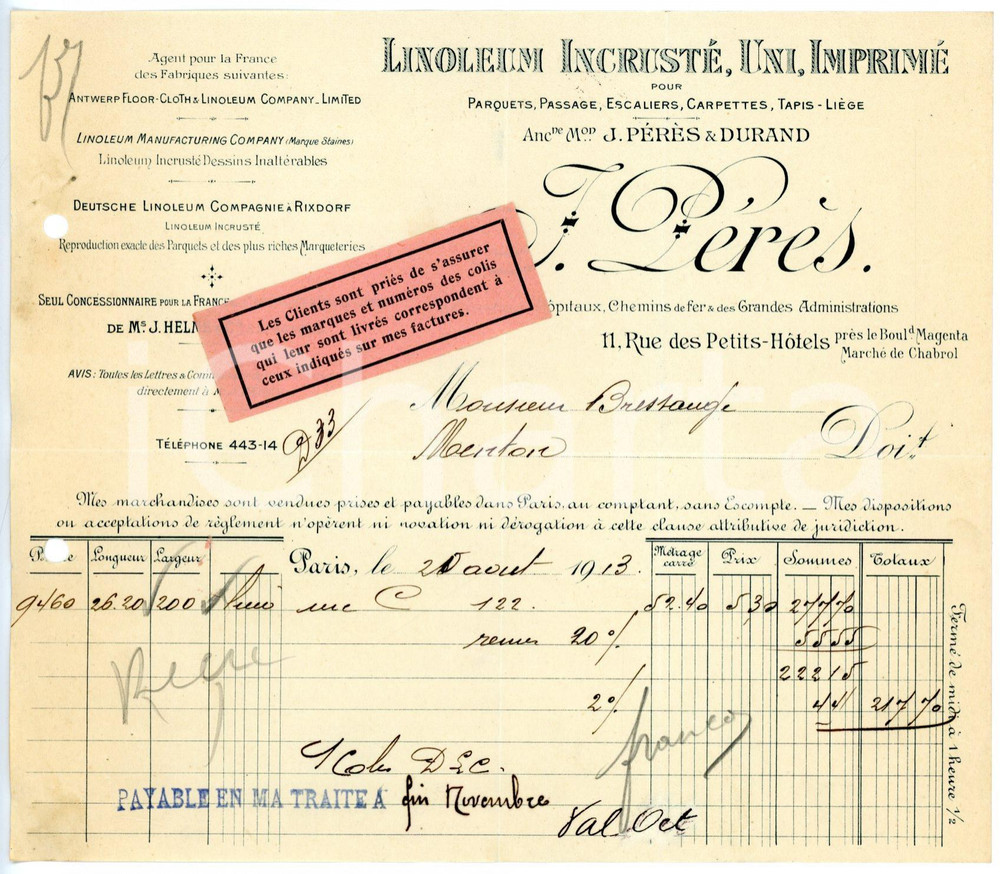 Agent pour la France
des Fabriques suivantes:
ANTWERP FLOOR-CLOTH & LINOLEUM COMPANY_LIMITED
LINOLEUM MANUFACTURING COMPANY (Marque Staines)
Linoleum Incrusté Dessins Inaltérables
DEUTSCHE LINOLEUM COMPAGNIE À RIXDORF
LINOLEUM INCRUSTÉ
Reproduction exacte des Parquets et des plus riches Marqueteries
SEUL CONCESSIONNAIRE POUR LA FRANCE
DE Ms. J. HELM
AVIS: Toutes les Lettres & Comm
directement à
TÉLÉPHONE 443-14
D 33
LINOLEUM INCRUSTÉ, UNI, IMPRIMÉ
POUR
PARQUETS, PASSAGE, ESCALIERS, CARPETTES, TAPIS-LIÈGE
Ancne Mon J. PÉRÈS & DURAND
J. Pérès.
ôpitaux, Chemins de fer & des Grandes Administrations
11, Rue des Petits-Hôtels près le Bould Magenta
Marché de Chabrol
Les Clients sont priés de s'assurer
que les marques et numéros des colis
qui leur sont livrés correspondent à
ceux indiqués sur mes factures.
Monsieur Bressange
Menton
Doit
Mes marchandises sont vendues prises et payables dans Paris, au comptant, sans Escompte. _ Mes dispositions
ou acceptations de règlement n'opèrent ni novation ni dérogation à cette clause attributive de juridiction.
Longueur Largeur Paris, le 20 aout 1913. Métrage carré Prix Sommes Totaux
9460 26.20 200 uni C 122. 52.40 5,30 277 70
remise 20% 55 55
222 15
2% 4 41 217 70
franco
1 Colis DEC.
PAYABLE EN MA TRAITE À fin Novembre
Val Oct
Fermé de midi à 1 heure 1/2
iCharta